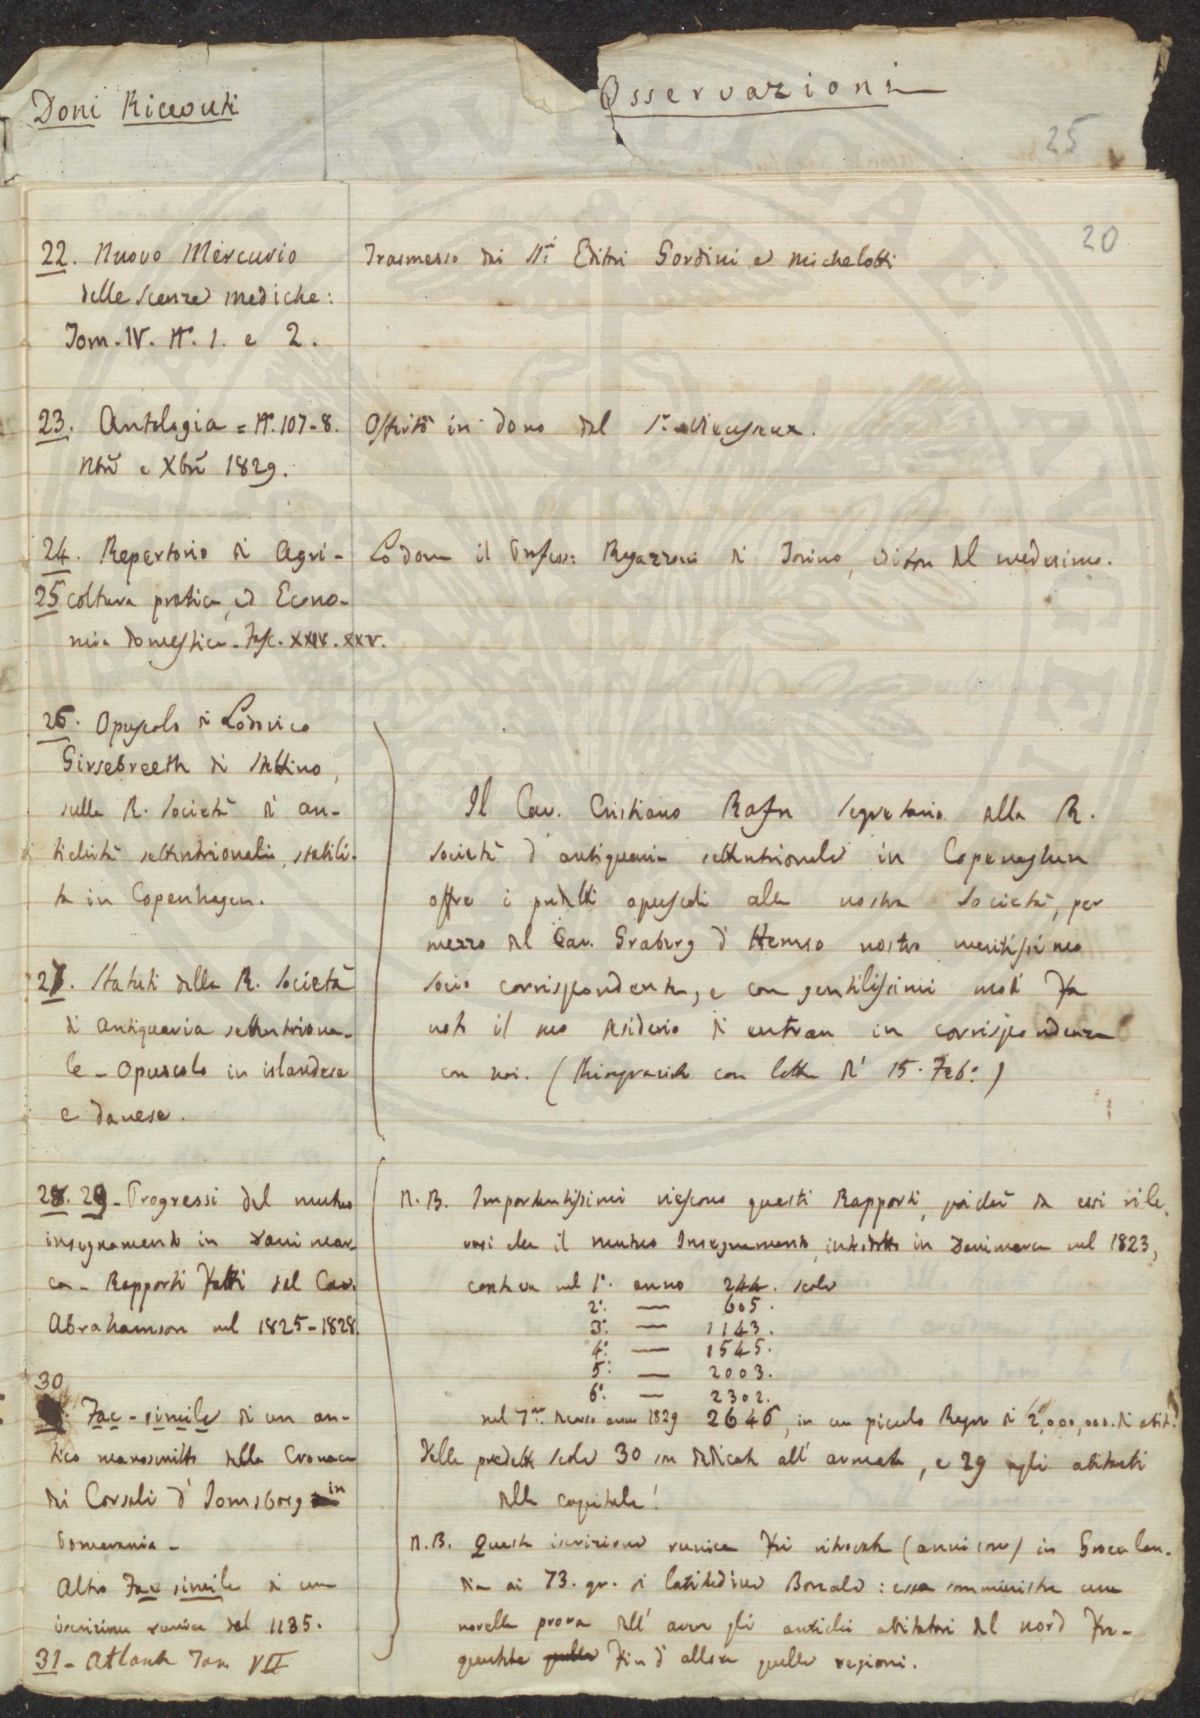 Doni Ricevuti
Osservazioni
25
20
22. Nuovo Mercurio
delle scienze mediche:
Tom. IV. N.º 1. e 2.
Trasmesso dai SS.ri Editori Gordini e Michelotti
23. Antologia = N.º 107-8.
Nbrẽ e Xbrẽ 1829.
Offerto in dono dal S.r Vieusseux.
24. Repertorio di Agri-
25 coltura pratica, ed Econo-
mia domestica. Fasc. XXIV. XXV.
Lo dona il Profess: Ragazzoni di Torino, editore del medesimo.
26. Opuscolo di Lodovico
Girsebreeth di Stettino,
sulla R. Società di an-
tichità settentrionali, stabili-
ta in Copenhagen.
27. Statuti della R. Società
di antiquaria settentriona-
le - Opuscolo in islandese
e danese.
Il Cav. Cristiano Rafn segretario alla R.
Società d'antiquaria settentrionale in Copenaghen
offre i predetti opuscoli alla nostra Società, per
mezzo del Cav. Graberg d'Hemso nostro meritissimo
socio corrispondente, e con gentilissimi modi fa
noto il suo desiderio di entrare in corrispondenza
con noi. (Ringraziato con lettera de' 15. Feb.º)
28. 29 - Progressi del mutuo
insegnamento in Danimar-
ca - Rapporti fatti dal Cav.
Abrahamson nel 1825-1828.
N.B. Importantissimi riescono questi Rapporti, poichè da essi rile-
vasi che il mutuo Insegnamento, introdotto in Danimarca nel 1823,
contava nel 1.º anno 244. scole
2.º — 605.
3.º — 1143.
4.º — 1545.
5.º — 2003.
6.º — 2302.
nel 7.mo decorso anno 1829 2646, in un piccolo Regno di 2,000,000. di abit.
Delle predette scole 30 son dedicate all'armata, e 29 agli abitanti
della capitale!
30
Fac-simile di un an-
tico manoscritto della Cronaca
dei Corsali d'Jomsborg in
Pomerania -
Altro Fac simile di una
iscrizione runica del 1135.
N.B. Questa iscrizione runica fu ritrovata (anni sono) in Groenlan-
dia ai 73. gr. di latitudine Boreale: essa somministra una
novella prova dell'aver gli antichi abitatori del nord fre-
quentate fin d'allora quelle regioni.
31 - Atlante Tom VII